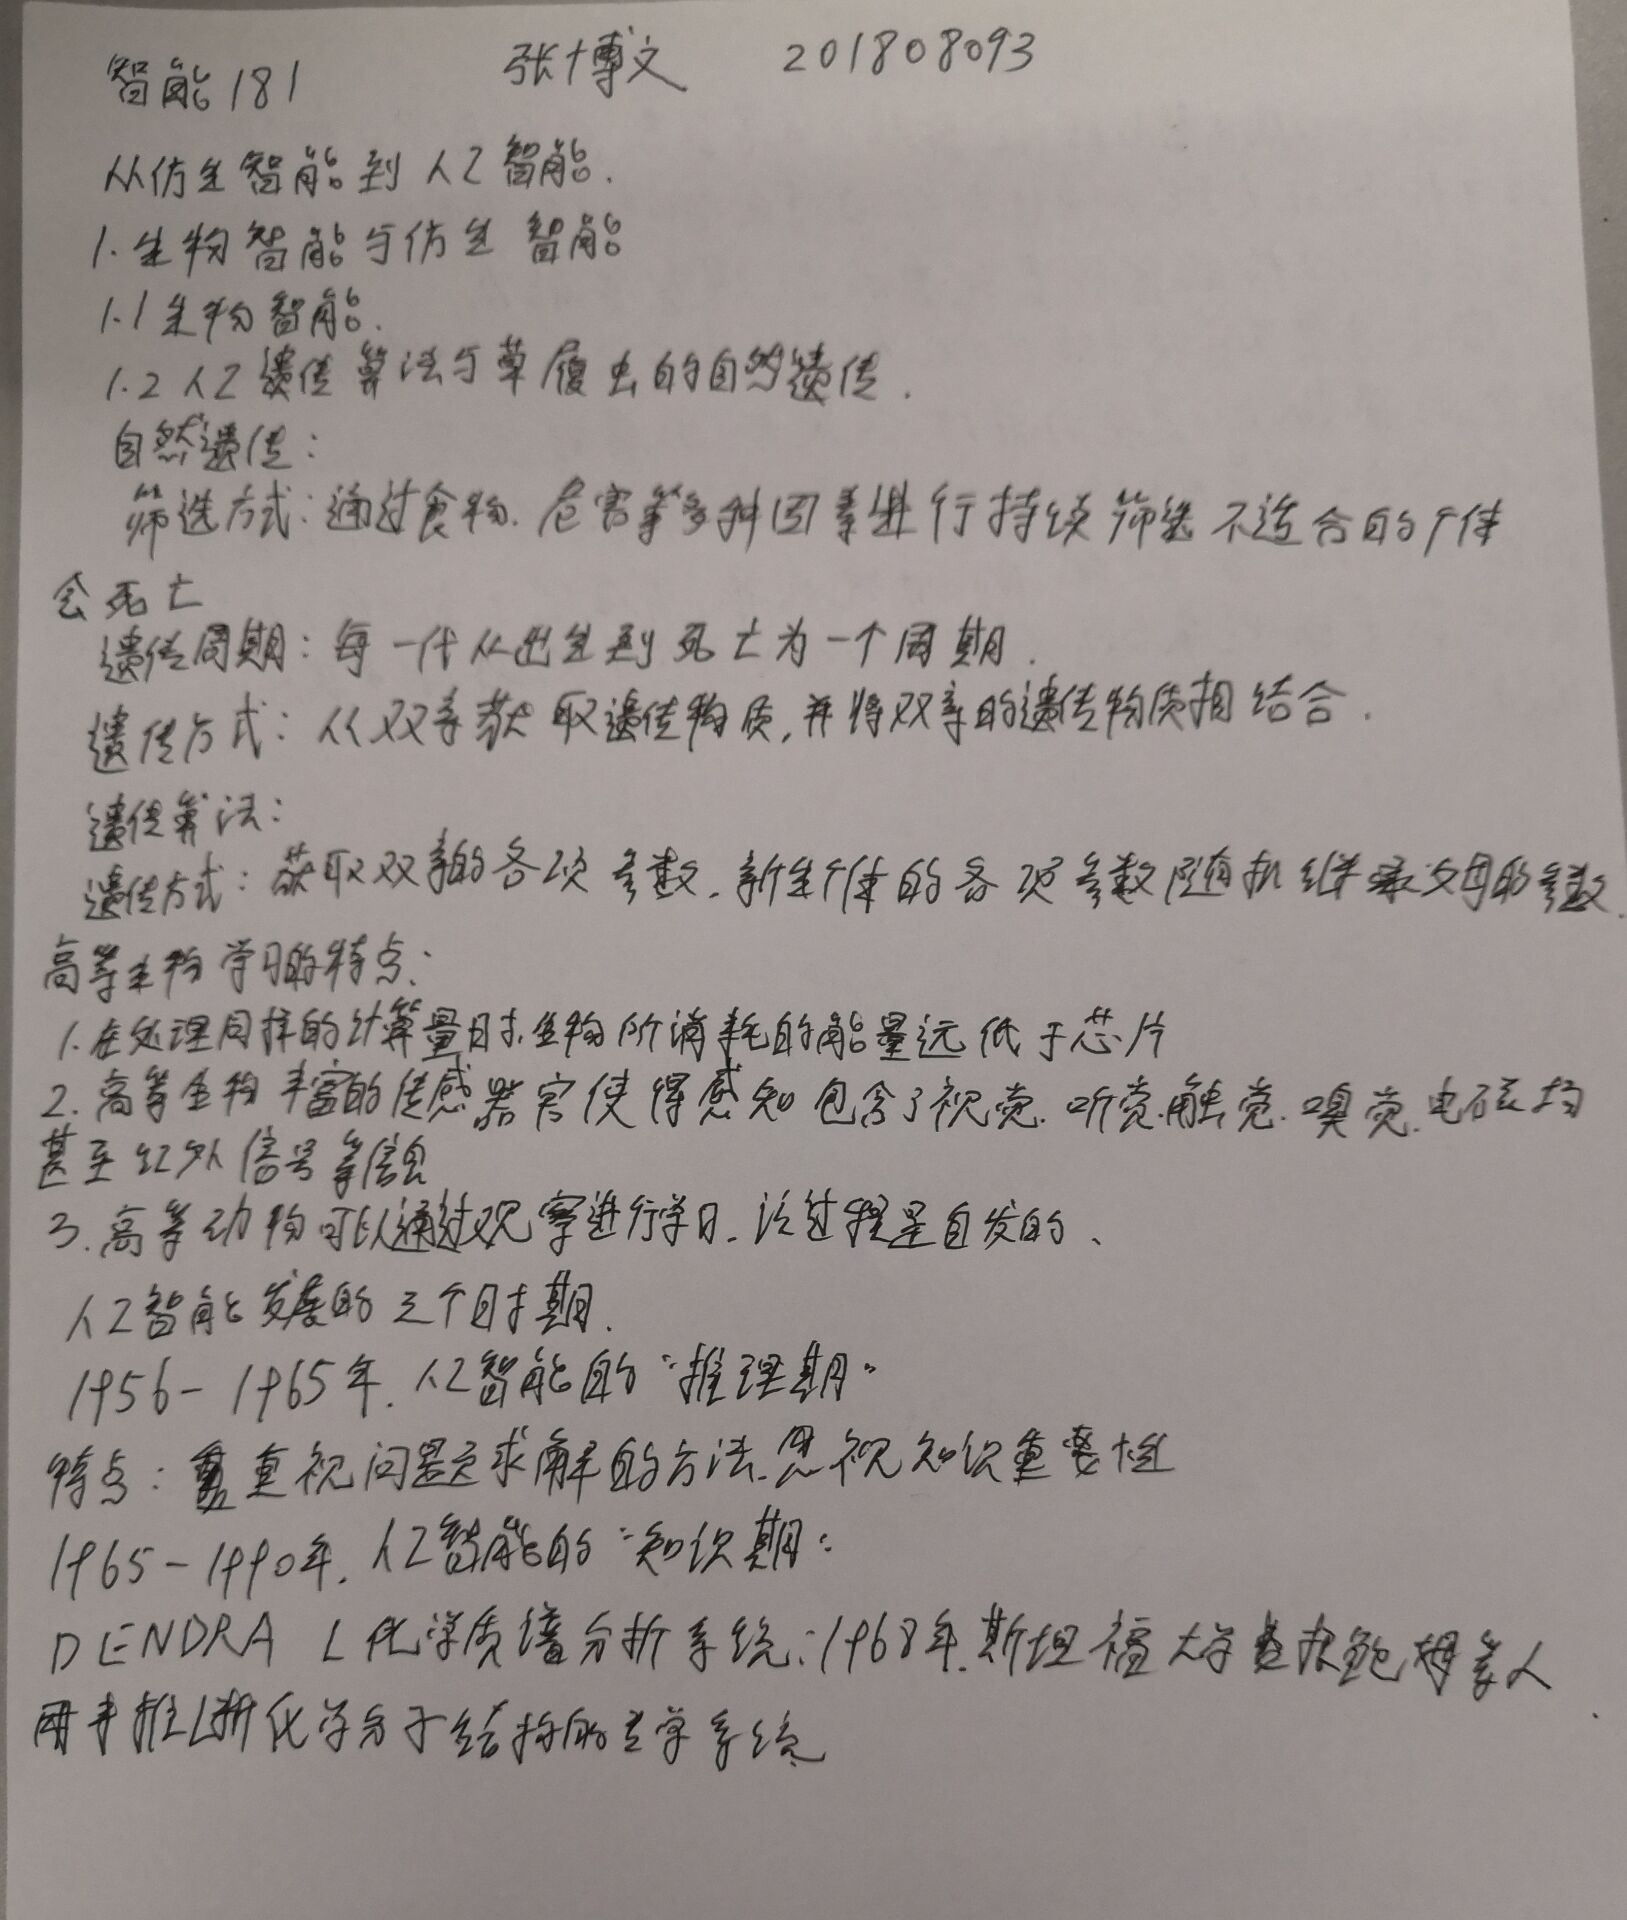 智能181 张博文 201808093
从仿生智能到人工智能.
1.生物智能与仿生智能
1.1生物智能.
1.2人工遗传算法与草履虫的自然遗传.
自然遗传:
筛选方式:通过食物、危害等多种因素进行持续筛选不适合的个体
会死亡
遗传周期:每一代从出生到死亡为一个周期.
遗传方式:从双亲获取遗传物质,并将双亲的遗传物质相结合.
遗传算法:
遗传方式:获取双亲的各项参数.新生个体的各项参数随机继承父母的参数.
高等生物学习的特点:
1.在处理同样的计算量时,生物所消耗的能量远低于芯片
2.高等生物丰富的传感器官使得感知包含了视觉.听觉.触觉.嗅觉.电磁场
甚至红外信号等信息
3.高等动物可以通过观察进行学习.该过程是自发的、
人工智能发展的三个时期.
1956-1965年.人工智能的“推理期”
特点:重视问题求解的方法.忽视知识重要性
1965-1990年.人工智能的“知识期”
DENDRAL化学质谱分析系统:1968年.斯坦福大学费根鲍姆等人
用于推断化学分子结构的系统